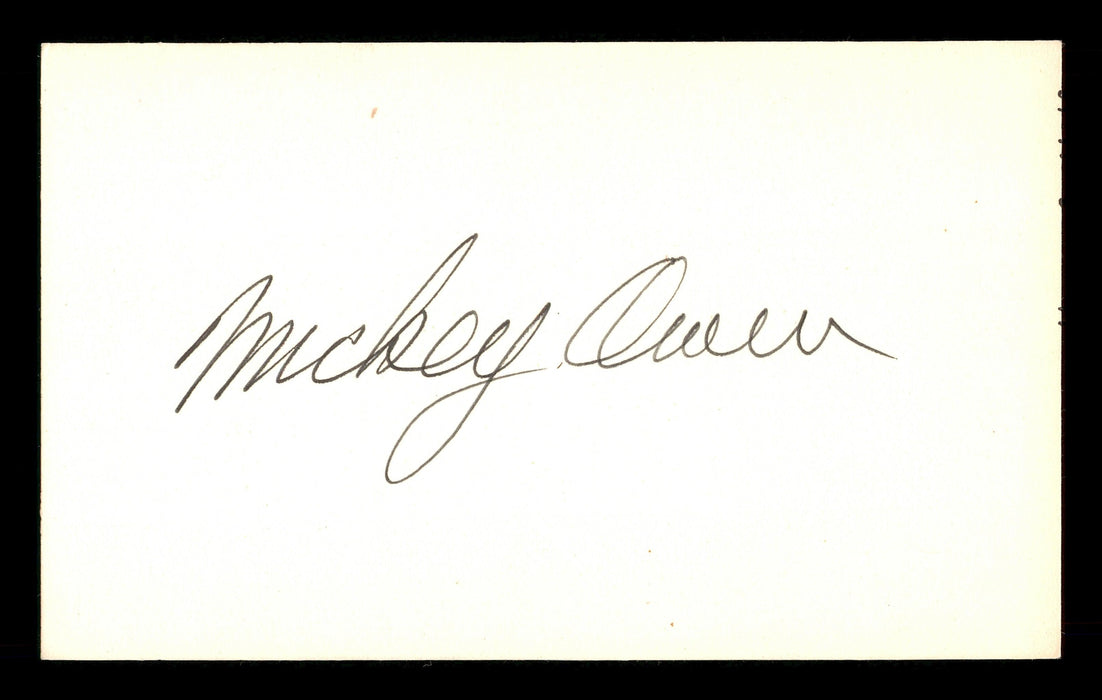 Mickey Owen